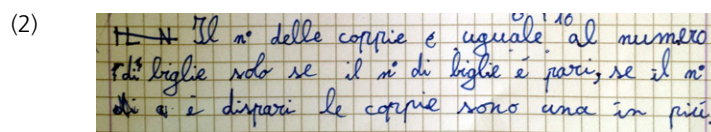 (2)
Il n° delle coppie è uguale al numero
di biglie solo se il n° di biglie è pari, se il n°
di è dispari le coppie sono una in più.